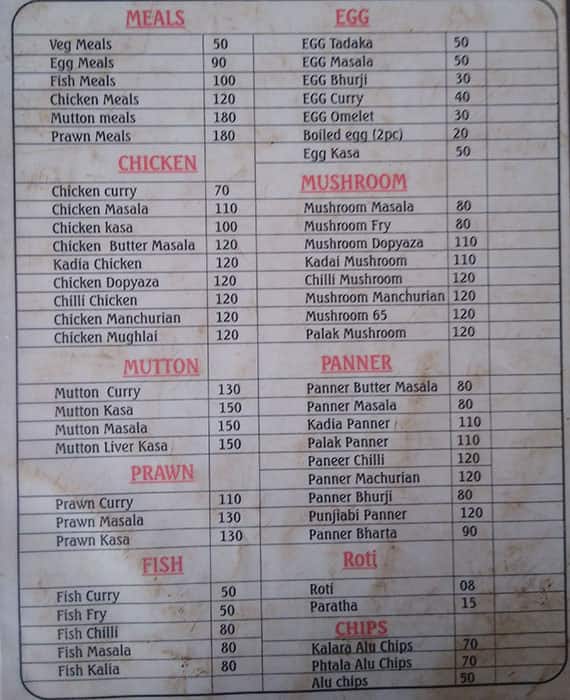 MEALS
Veg Meals 50
Egg Meals 90
Fish Meals 100
Chicken Meals 120
Mutton meals 180
Prawn Meals 180
CHICKEN
Chicken curry 70
Chicken Masala 110
Chicken kasa 100
Chicken Butter Masala 120
Kadia Chicken 120
Chicken Dopyaza 120
Chilli Chicken 120
Chicken Manchurian 120
Chicken Mughlai 120
MUTTON
Mutton Curry 130
Mutton Kasa 150
Mutton Masala 150
Mutton Liver Kasa 150
PRAWN
Prawn Curry 110
Prawn Masala 130
Prawn Kasa 130
FISH
Fish Curry 50
Fish Fry 50
Fish Chilli 80
Fish Masala 80
Fish Kalia 80
EGG
EGG Tadaka 50
EGG Masala 50
EGG Bhurji 30
EGG Curry 40
EGG Omelet 30
Boiled egg (2pc) 20
Egg Kasa 50
MUSHROOM
Mushroom Masala 80
Mushroom Fry 80
Mushroom Dopyaza 110
Kadai Mushroom 110
Chilli Mushroom 120
Mushroom Manchurian 120
Mushroom 65 120
Palak Mushroom 120
PANNER
Panner Butter Masala 80
Panner Masala 80
Kadia Panner 110
Palak Panner 110
Paneer Chilli 120
Panner Machurian 120
Panner Bhurji 80
Punjiabi Panner 120
Panner Bharta 90
Roti
Roti 08
Paratha 15
CHIPS
Kalara Alu Chips 70
Phtala Alu Chips 70
Alu chips 50